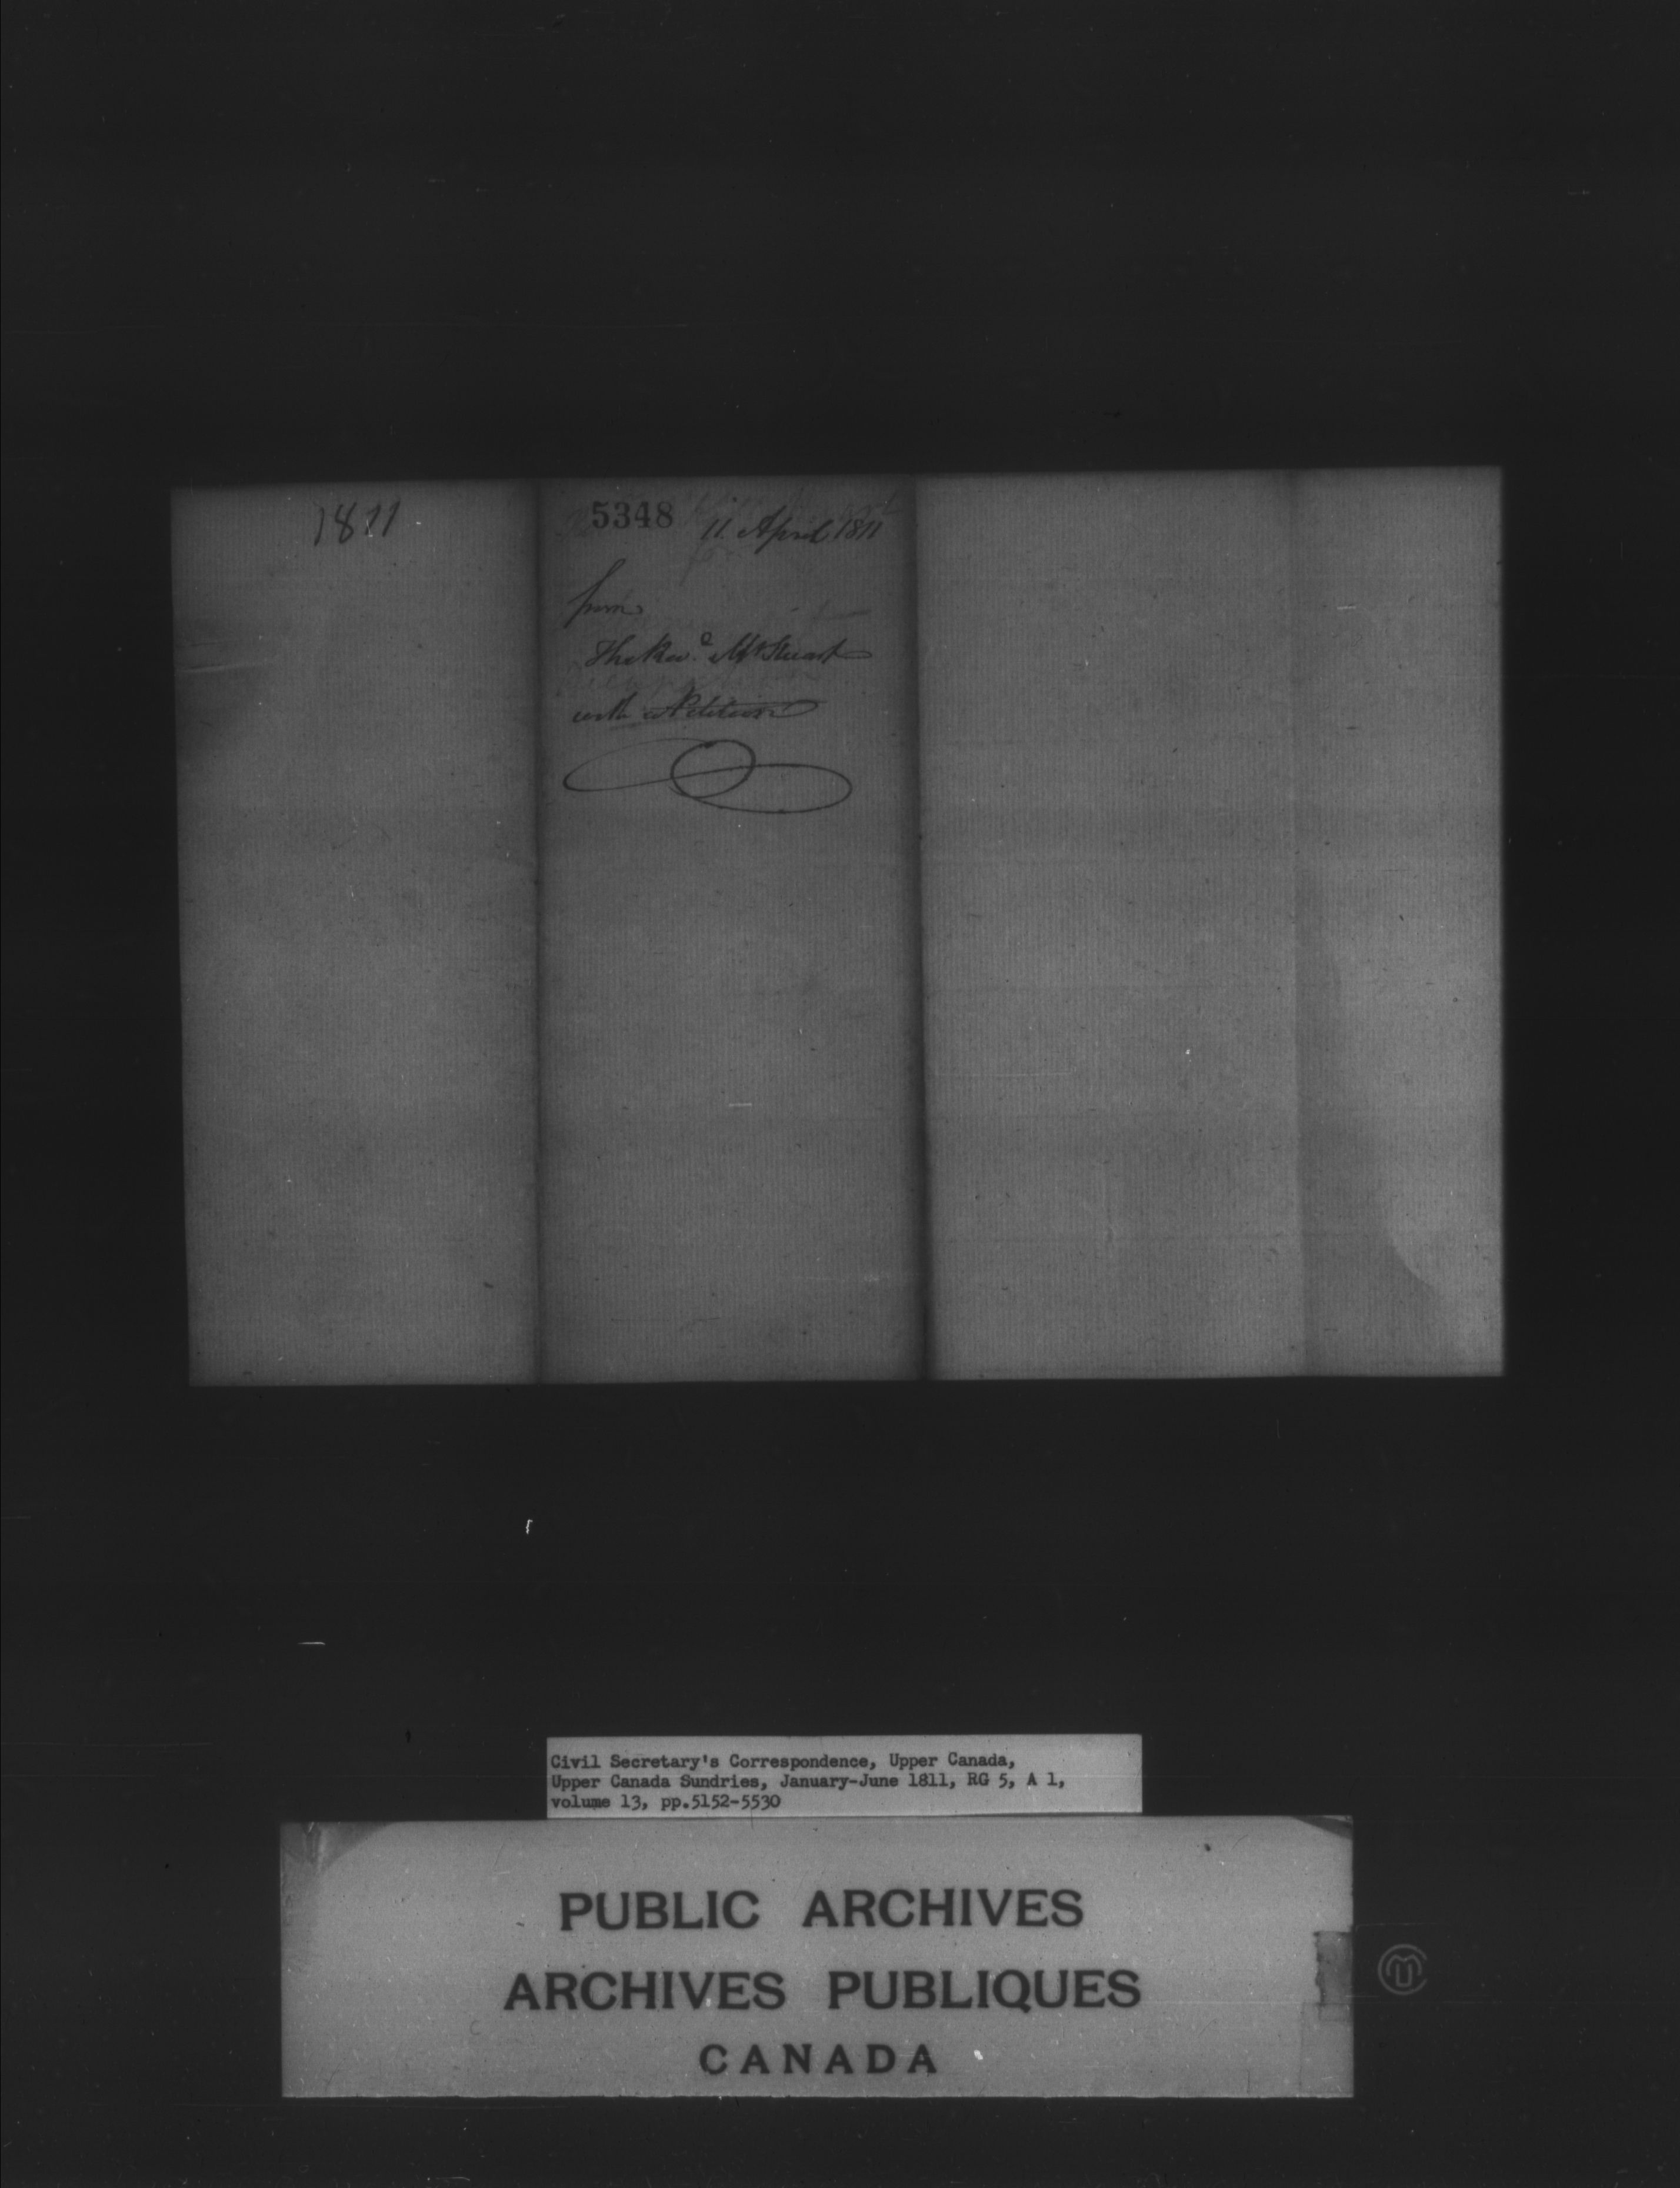 1811
5348
11. April 1811
from
The Revd. Mr Stuart
with a Petition
Civil Secretary's Correspondence, Upper Canada,
Upper Canada Sundries, January-June 1811, RG 5, A 1,
volume 13, pp.5152-5530
PUBLIC ARCHIVES
ARCHIVES PUBLIQUES
CANADA